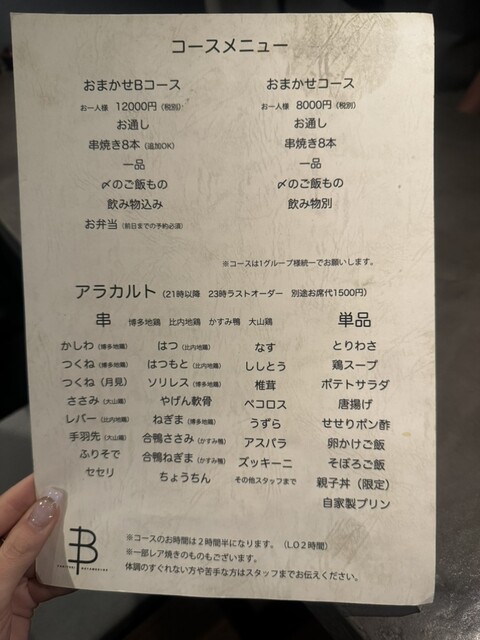 コースメニュー
おまかせBコース
お一人様 12000円(税別)
お通し
串焼き8本(追加OK)
一品
〆のご飯もの
飲み物込み
お弁当(前日までの予約必須)
おまかせコース
お一人様 8000円(税別)
お通し
串焼き8本
一品
〆のご飯もの
飲み物別
※コースは1グループ様統一でお願いします。
アラカルト(21時以降 23時ラストオーダー 別途お席代1500円)
串 博多地鶏 比内地鶏 かすみ鴨 大山鶏
かしわ(博多地鶏)
つくね(博多地鶏)
つくね(月見)
ささみ(大山鶏)
レバー(比内地鶏)
手羽先(大山鶏)
ふりそで
セセリ
はつ(比内地鶏)
はつもと(比内地鶏)
ソリレス(博多地鶏)
やげん軟骨
ねぎま(博多地鶏)
合鴨ささみ(かすみ鴨)
合鴨ねぎま(かすみ鴨)
ちょうちん
なす
ししとう
椎茸
ペコロス
うずら
アスパラ
ズッキーニ
その他スタッフまで
単品
とりわさ
鶏スープ
ポテトサラダ
唐揚げ
せせりポン酢
卵かけご飯
そぼろご飯
親子丼(限定)
自家製プリン
※コースのお時間は2時間半になります。(LO2時間)
※一部レア焼きのものもございます。
体調のすぐれない方や苦手な方はスタッフまでお伝えください。